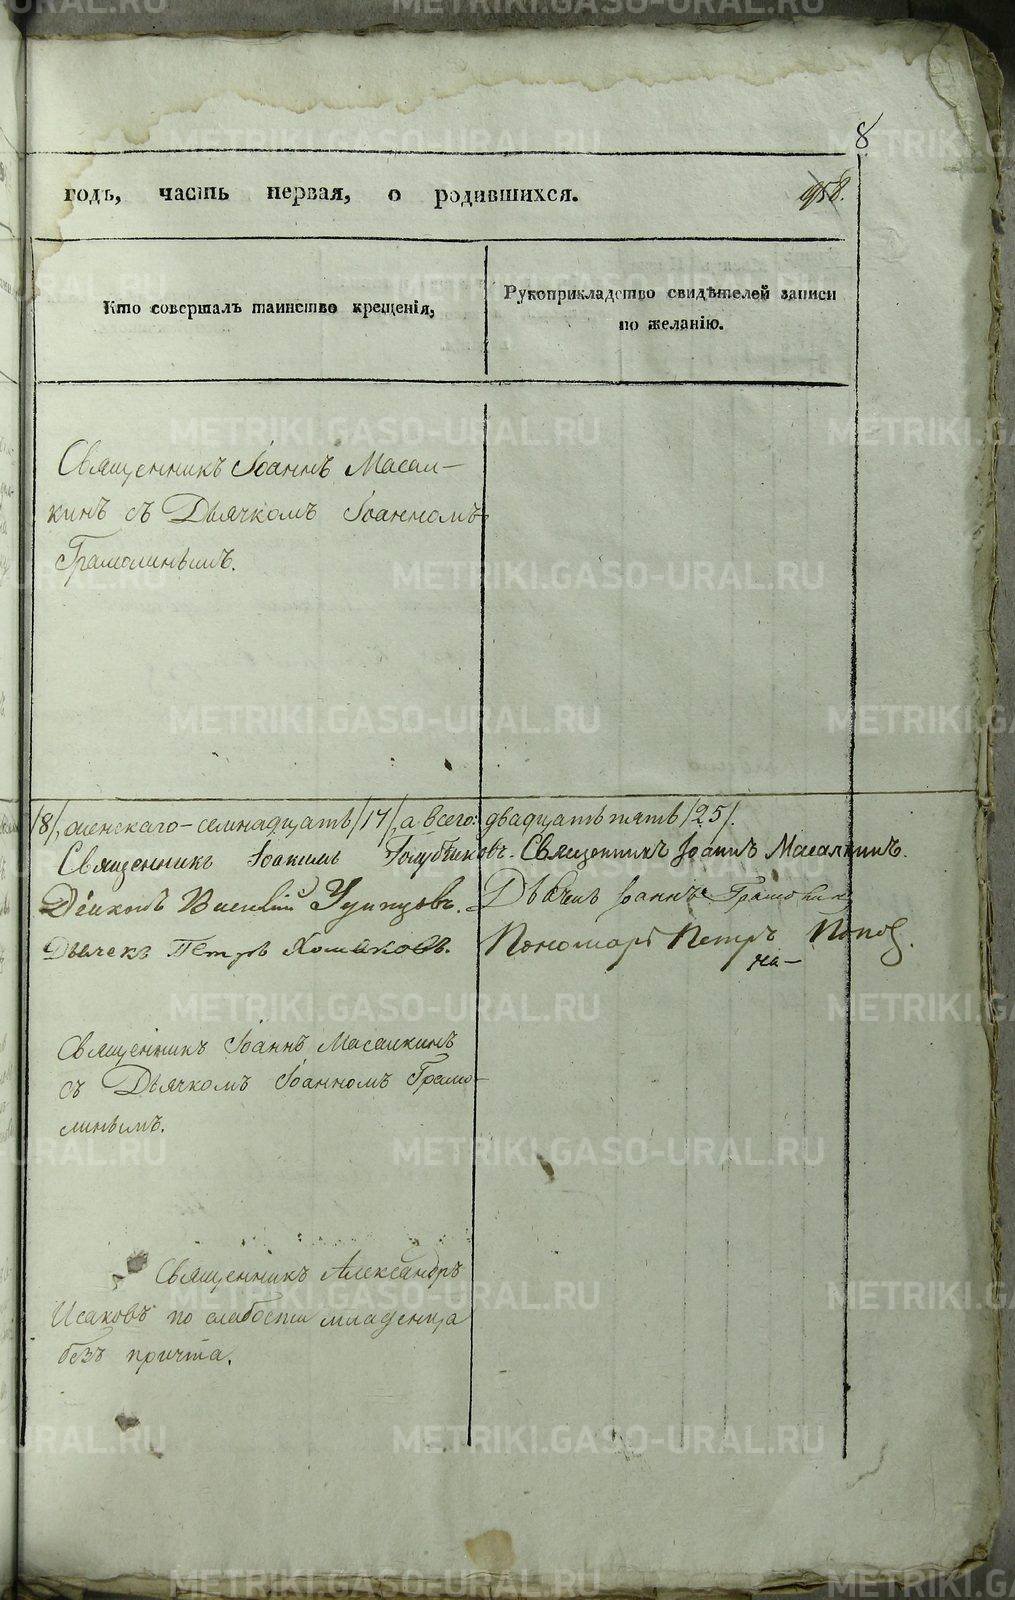 8
годъ, часть первая, о родившихся.
958.
Кто совершалъ таинство крещенія,
Рукоприкладство свидѣтелей записи
по желанію.
Священникъ Іоаннъ Масал-
кинъ съ Дьячкомъ Іоанномъ
Грамолинымъ.
/8/, женскаго - семнадцать /17/, а всего: двадцать пять /25/.
Священникъ Іоакимъ Голубчиковъ. Священникъ Іоаннъ Масалкинъ.
Діаконъ Василій
Дьячекъ Іоаннъ Грамолин
Дьячекъ Петръ Хомяковъ.
Пономарь Петръ Попов
на-
Священникъ Іоаннъ Масалкинъ
съ Дьячкомъ Іоанномъ Грамо-
линымъ.
Священникъ Александръ
Исаковъ по слабости младенца
безъ причта.
METRIKI.GASO-URAL.RU